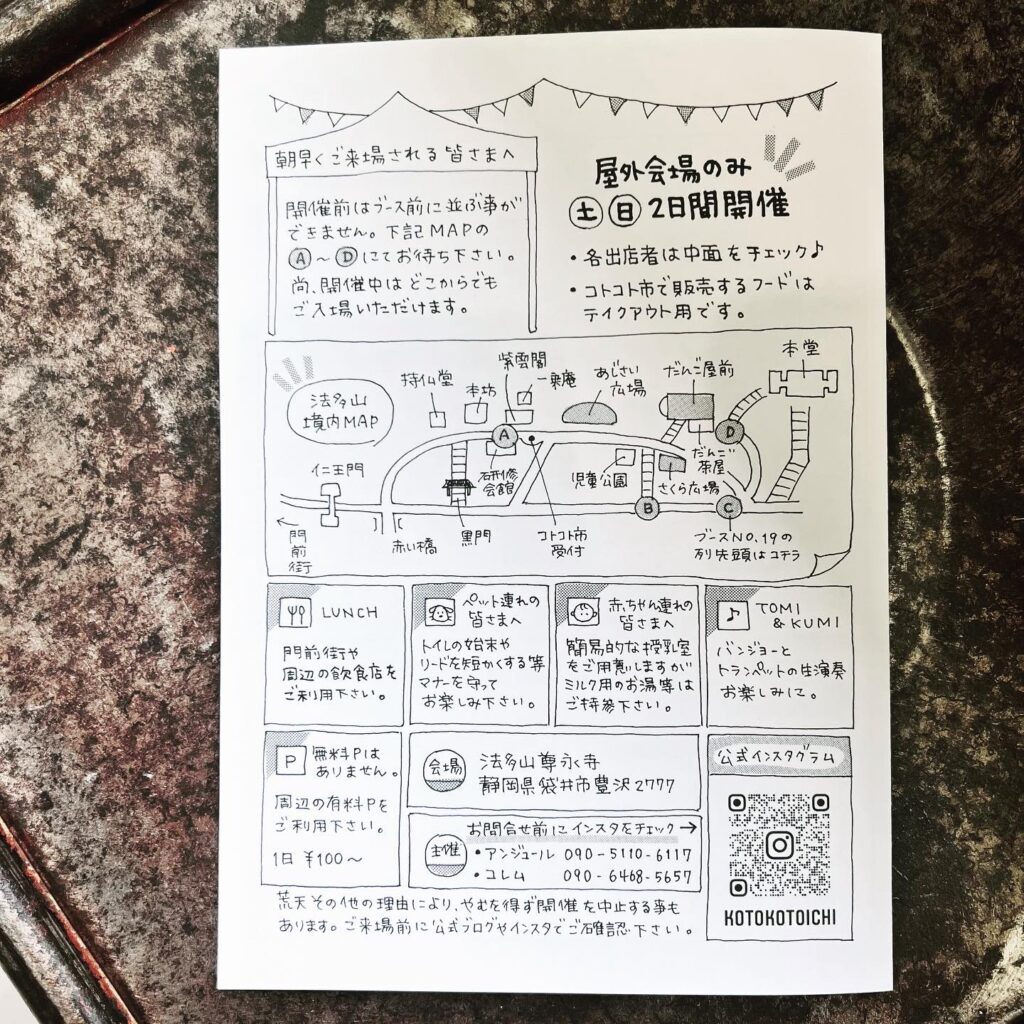 朝早くご来場される皆さまへ
開催前はブース前に並ぶ事が
できません。下記MAPの
Ⓐ～Ⓓにてお待ち下さい。
尚、開催中はどこからでも
ご入場いただけます。
屋外会場のみ
㊏㊐2日間開催
・各出店者は中面をチェック♪
・コトコト市で販売するフードは
テイクアウト用です。
法多山
境内MAP
持仏堂
本坊
紫雲閣
一乗庵
あじさい
広場
だんご屋前
本堂
仁王門
A
研修
会館
児童公園
だんご
茶屋
さくら広場
D
B
C
←
門前街
赤い橋
黒門
コトコト市
受付
ブースNO.19の
列先頭はコチラ
LUNCH
門前街や
周辺の飲食店を
ご利用下さい。
ペット連れの
皆さまへ
トイレの始末や
リードを短かくする等
マナーを守って
お楽しみ下さい。
赤ちゃん連れの
皆さまへ
簡易的な授乳室
をご用意しますが
ミルク用のお湯等は
ご持参下さい。
♪ TOMI
& KUMI
バンジョーと
トランペットの生演奏
お楽しみに。
P 無料Pは
ありません。
周辺の有料Pを
ご利用下さい。
1日 ¥100～
会場
法多山尊永寺
静岡県袋井市豊沢2777
主催
お問合せ前にインスタをチェック→
・アンジュール 090-5110-6117
・コレム 090-6468-5657
公式インスタグラム
KOTOKOTOICHI
荒天その他の理由により、やむを得ず開催を中止する事も
あります。ご来場前に公式ブログやインスタでご確認下さい。